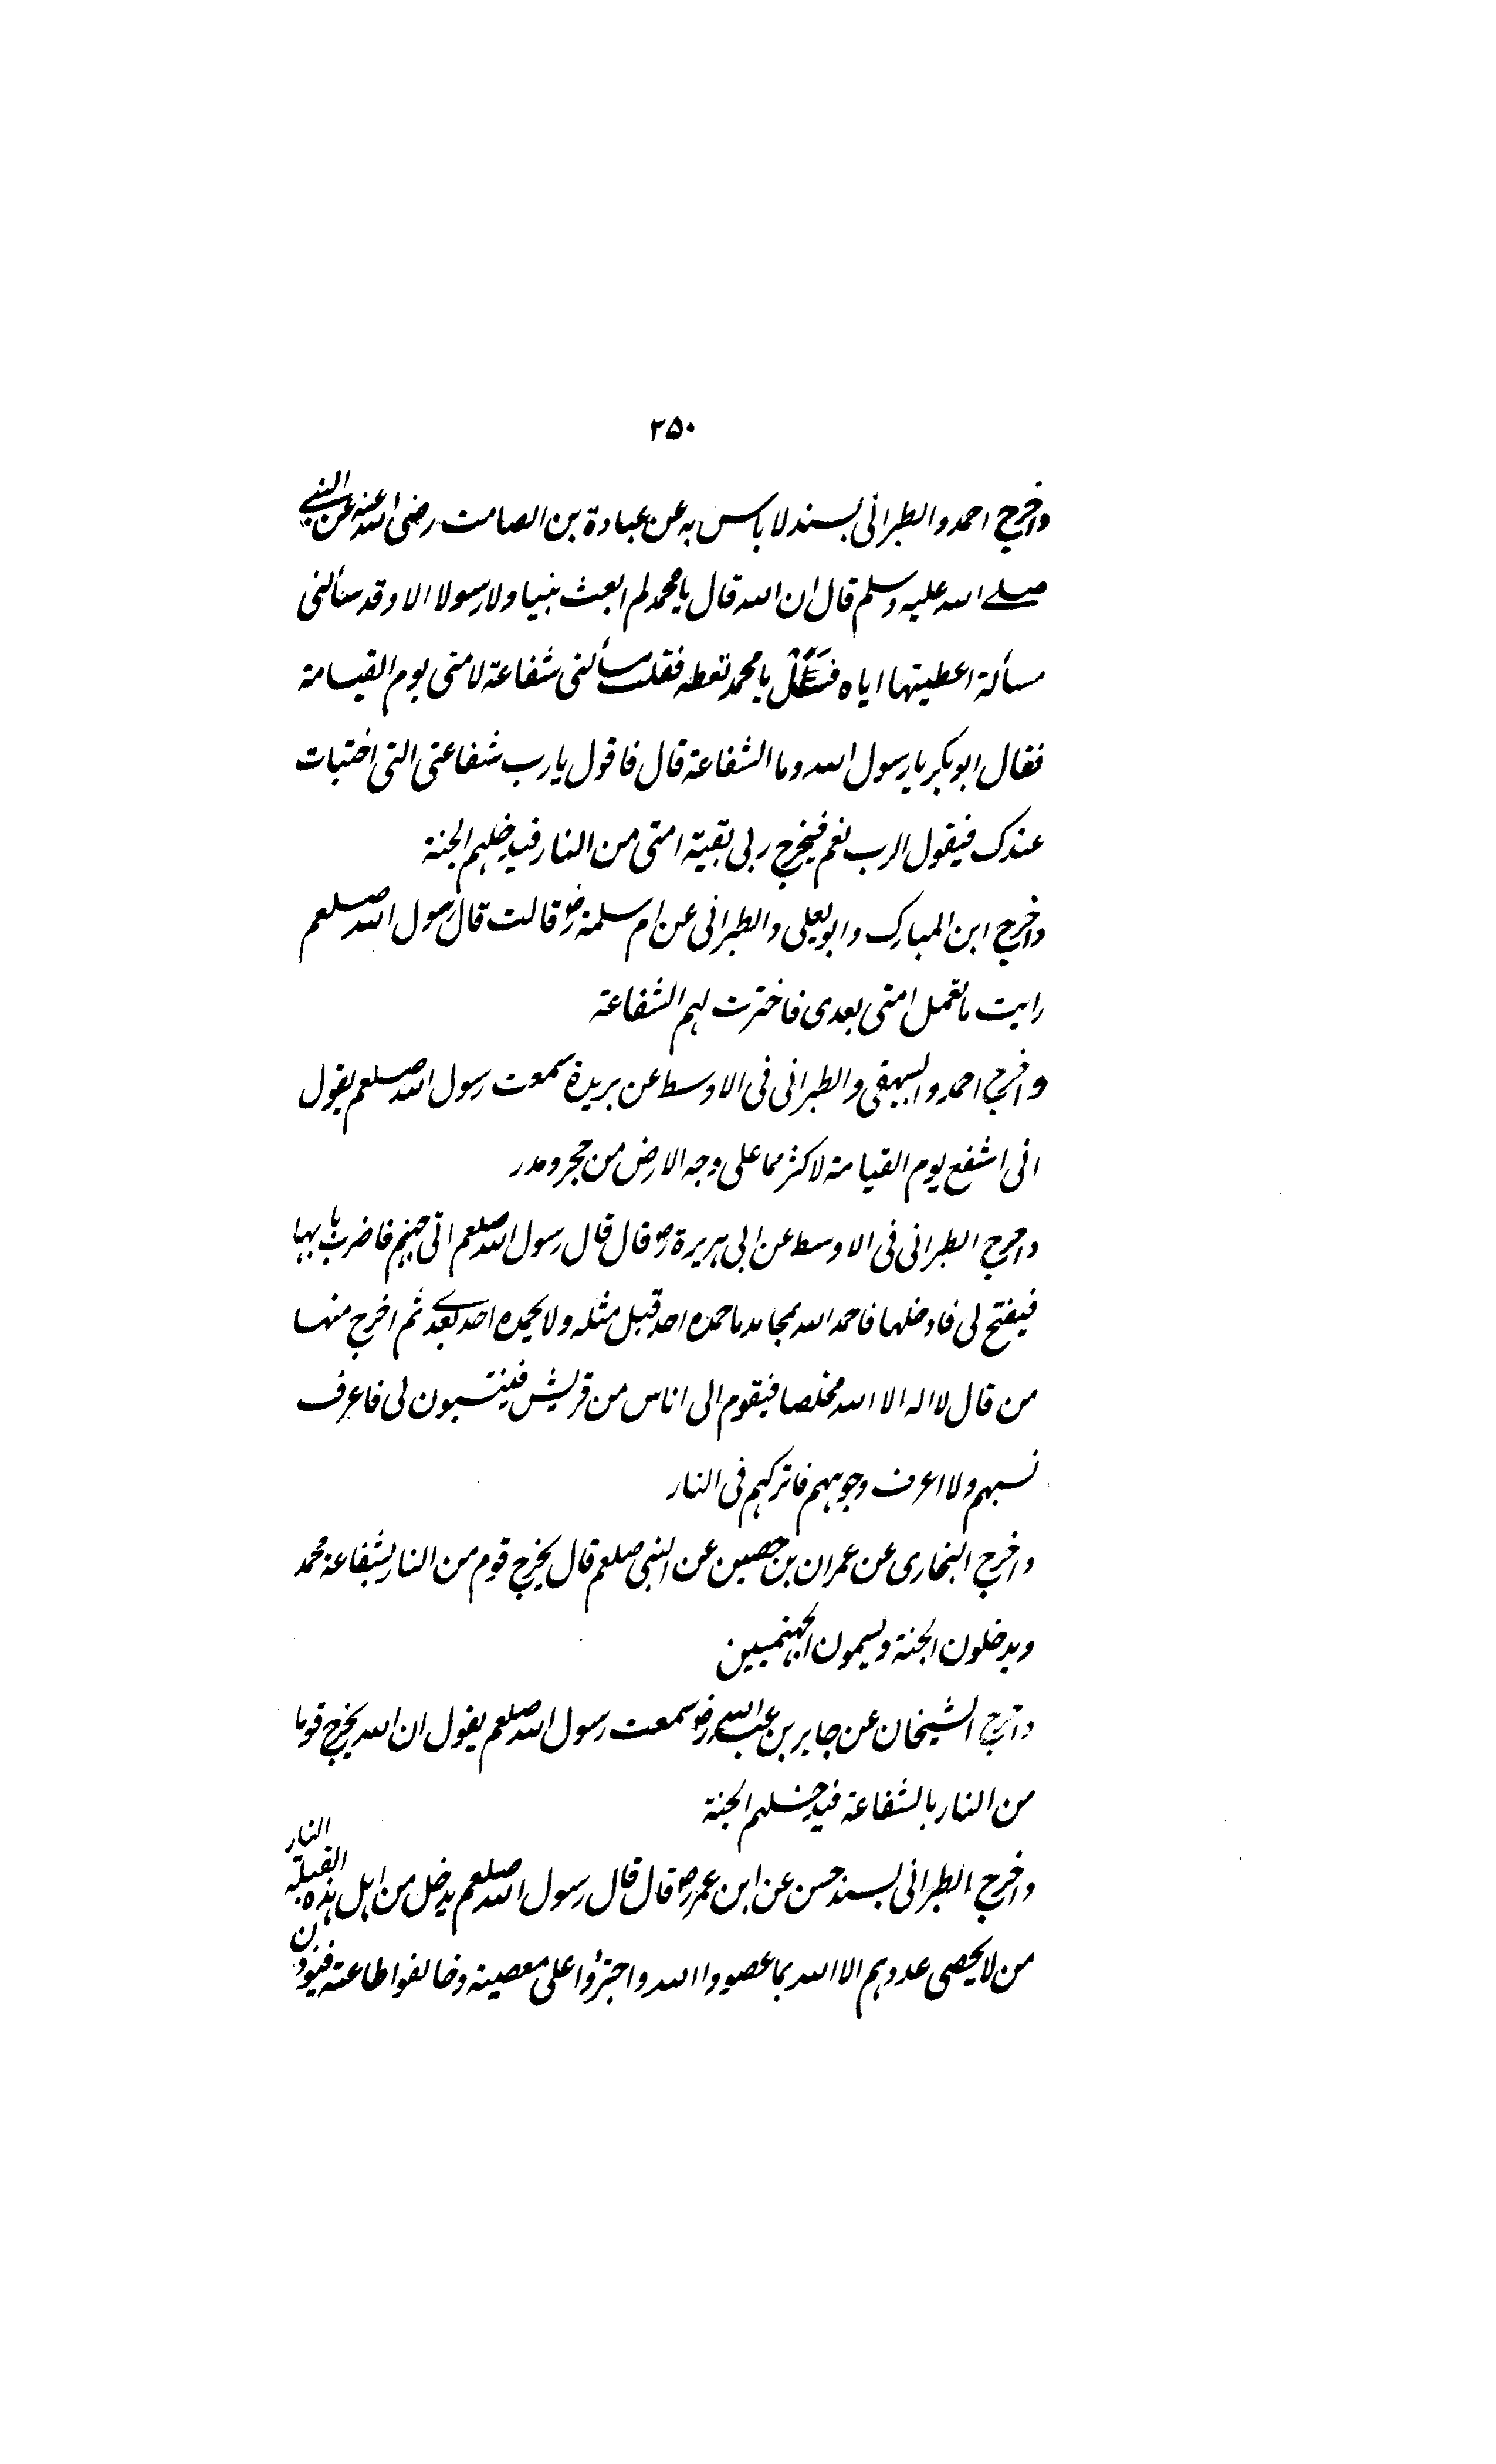 ۲۵۰
واخرج احمد والطبرانی بسند لا باس به عن عبادة بن الصامت رضی الله عنه عن النبی
صلے الله علیه وسلم قال ان الله قال یا محمد لم ابعث نبیا ولا رسولا الا وقد سألنی
مسألة اعطیتها ایاه فسئل یا محمد تعطه فقلت مسألتی شفاعة لامتی یوم القیامة
فقال ابوبکر یا رسول الله وما الشفاعة قال فاقول یا رب شفاعتی التی اختبات
عندک فیقول الرب نعم فیخرج ربی بقیة امتی من النار فیدخلهم الجنة
واخرج ابن المبارک وابویعلی والطبرانی عن ام سلمة رض قالت قال رسول الله صلعم
رایت ما تعمل امتی بعدی فاخترت لهم الشفاعة
واخرج احمد والبیهقی والطبرانی فی الاوسط عن بریدة سمعت رسول الله صلعم یقول
انی اشفع یوم القیامة لاکثر مما علی وجه الارض من حجر ومدر
واخرج الطبرانی فی الاوسط عن ابی هریرة رض قال قال رسول الله صلعم اتی جهنم فاضرب بابها
فیفتح لی فادخلها فاحمد الله بمحامد ما حمده احد قبلی مثله ولا یحمده احد بعدی ثم اخرج منها
من قال لا اله الا الله مخلصا فیقوم الی اناس من قریش فینتسبون لی فاعرف
نسبهم ولا اعرف وجوههم فاترکهم فی النار
واخرج البخاری عن عمران بن حصین عن النبی صلعم قال یخرج قوم من النار بشفاعة محمد
ویدخلون الجنة ویسمون الجهنمیین
واخرج الشیخان عن جابر بن عبدالله رض سمعت رسول الله صلعم یقول ان الله یخرج قوما
من النار بالشفاعة فیدخلهم الجنة
واخرج الطبرانی بسند حسن عن ابن عمر رض قال قال رسول الله صلعم یدخل من اهل هذه القبلة النار
من لا یحصی عددهم الا الله بما عصوا الله واجترؤا علی معصیته وخالفوا طاعته فیؤذن